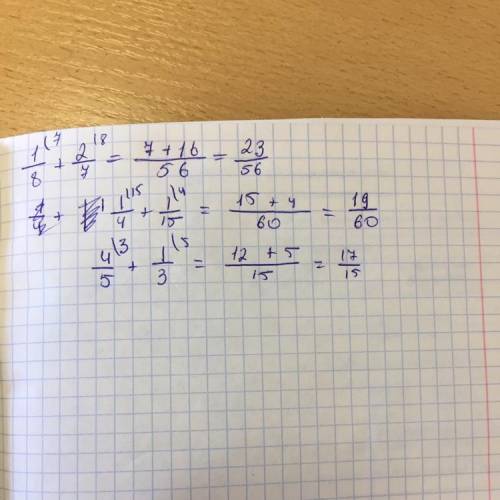 1/8 \7 + 2/7 \8 = 7 + 16/56 = 23/56
1/4 \15 + 1/15 \4 = 15 + 4/60 = 19/60
4/5 \3 + 1/3 \5 = 12 + 5/15 = 17/15